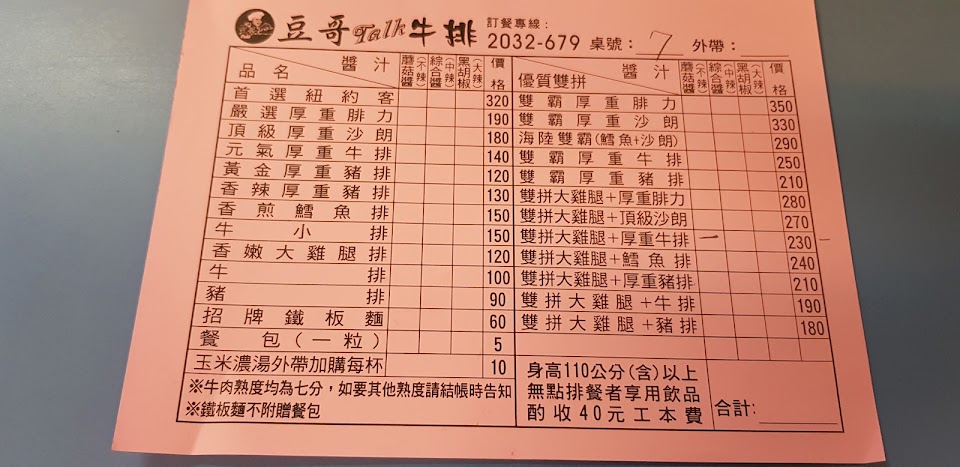 豆哥Talk牛排 訂餐專線：2032-679 桌號：7 外帶：
品名 醬汁 蘑菇醬(不辣) 綜合醬(中辣) 黑胡椒(大辣) 價格
首選紐約客 320
嚴選厚重腓力 190
頂級厚重沙朗 180
元氣厚重牛排 140
黃金厚重豬排 120
香辣厚重豬排 130
香煎鱈魚排 150
牛小排 150
香嫩大雞腿排 120
牛排 100
豬排 90
招牌鐵板麵 60
餐包(一粒) 5
玉米濃湯外帶加購每杯 10
※牛肉熟度均為七分，如要其他熟度請結帳時告知
※鐵板麵不附贈餐包
優質雙拼 醬汁 蘑菇醬(不辣) 綜合醬(中辣) 黑胡椒(大辣) 價格
雙霸厚重腓力 350
雙霸厚重沙朗 330
海陸雙霸(鱈魚+沙朗) 290
雙霸厚重牛排 250
雙霸厚重豬排 210
雙拼大雞腿+厚重腓力 280
雙拼大雞腿+頂級沙朗 270
雙拼大雞腿+厚重牛排 一 230
雙拼大雞腿+鱈魚排 240
雙拼大雞腿+厚重豬排 210
雙拼大雞腿+牛排 190
雙拼大雞腿+豬排 180
身高110公分(含)以上
無點排餐者享用飲品
酌收40元工本費
合計: